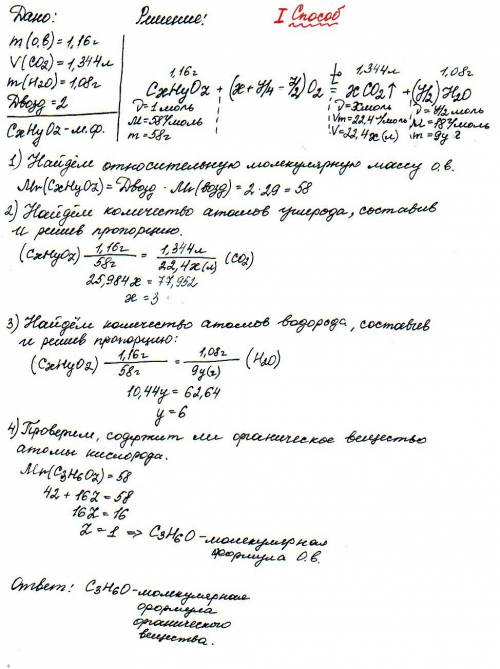 Дано: Решение: I Способ
m(о.в)=1,16г
V(CO2)=1,344л
m(H2O)=1,08г
Dвозд=2
CxHyOz-м.ф.
1,16г 1,344л 1,08г
CxHyOz + (x+y/4-z/2)O2 = t xCO2↑ + (y/2)H2O
ν=1моль ν=xмоль ν=y/2моль
M=58г/моль Vm=22,4л/моль M=18г/моль
m=58г V=22,4x(л) m=9y г
1) Найдём относительную молекулярную массу о.в.
Mr(CxHyOz)=Dвозд·Mr(возд)=2·29=58
2) Найдём количество атомов углерода, составив
и решив пропорцию.
(CxHyOz) 1,16г/58г = 1,344л/22,4x(л) (CO2)
25,984x=77,952
x=3
3) Найдём количество атомов водорода, составив
и решив пропорцию:
(CxHyOz) 1,16г/58г = 1,08г/9y(г) (H2O)
10,44y=62,64
y=6
4) Проверим, содержит ли органическое вещество
атомы кислорода.
Mr(C3H6Oz)=58
42+16z=58
16z=16
z=1 => C3H6O-молекулярная
формула о.в.
Ответ: C3H6O-молекулярная
формула
органического
вещества.